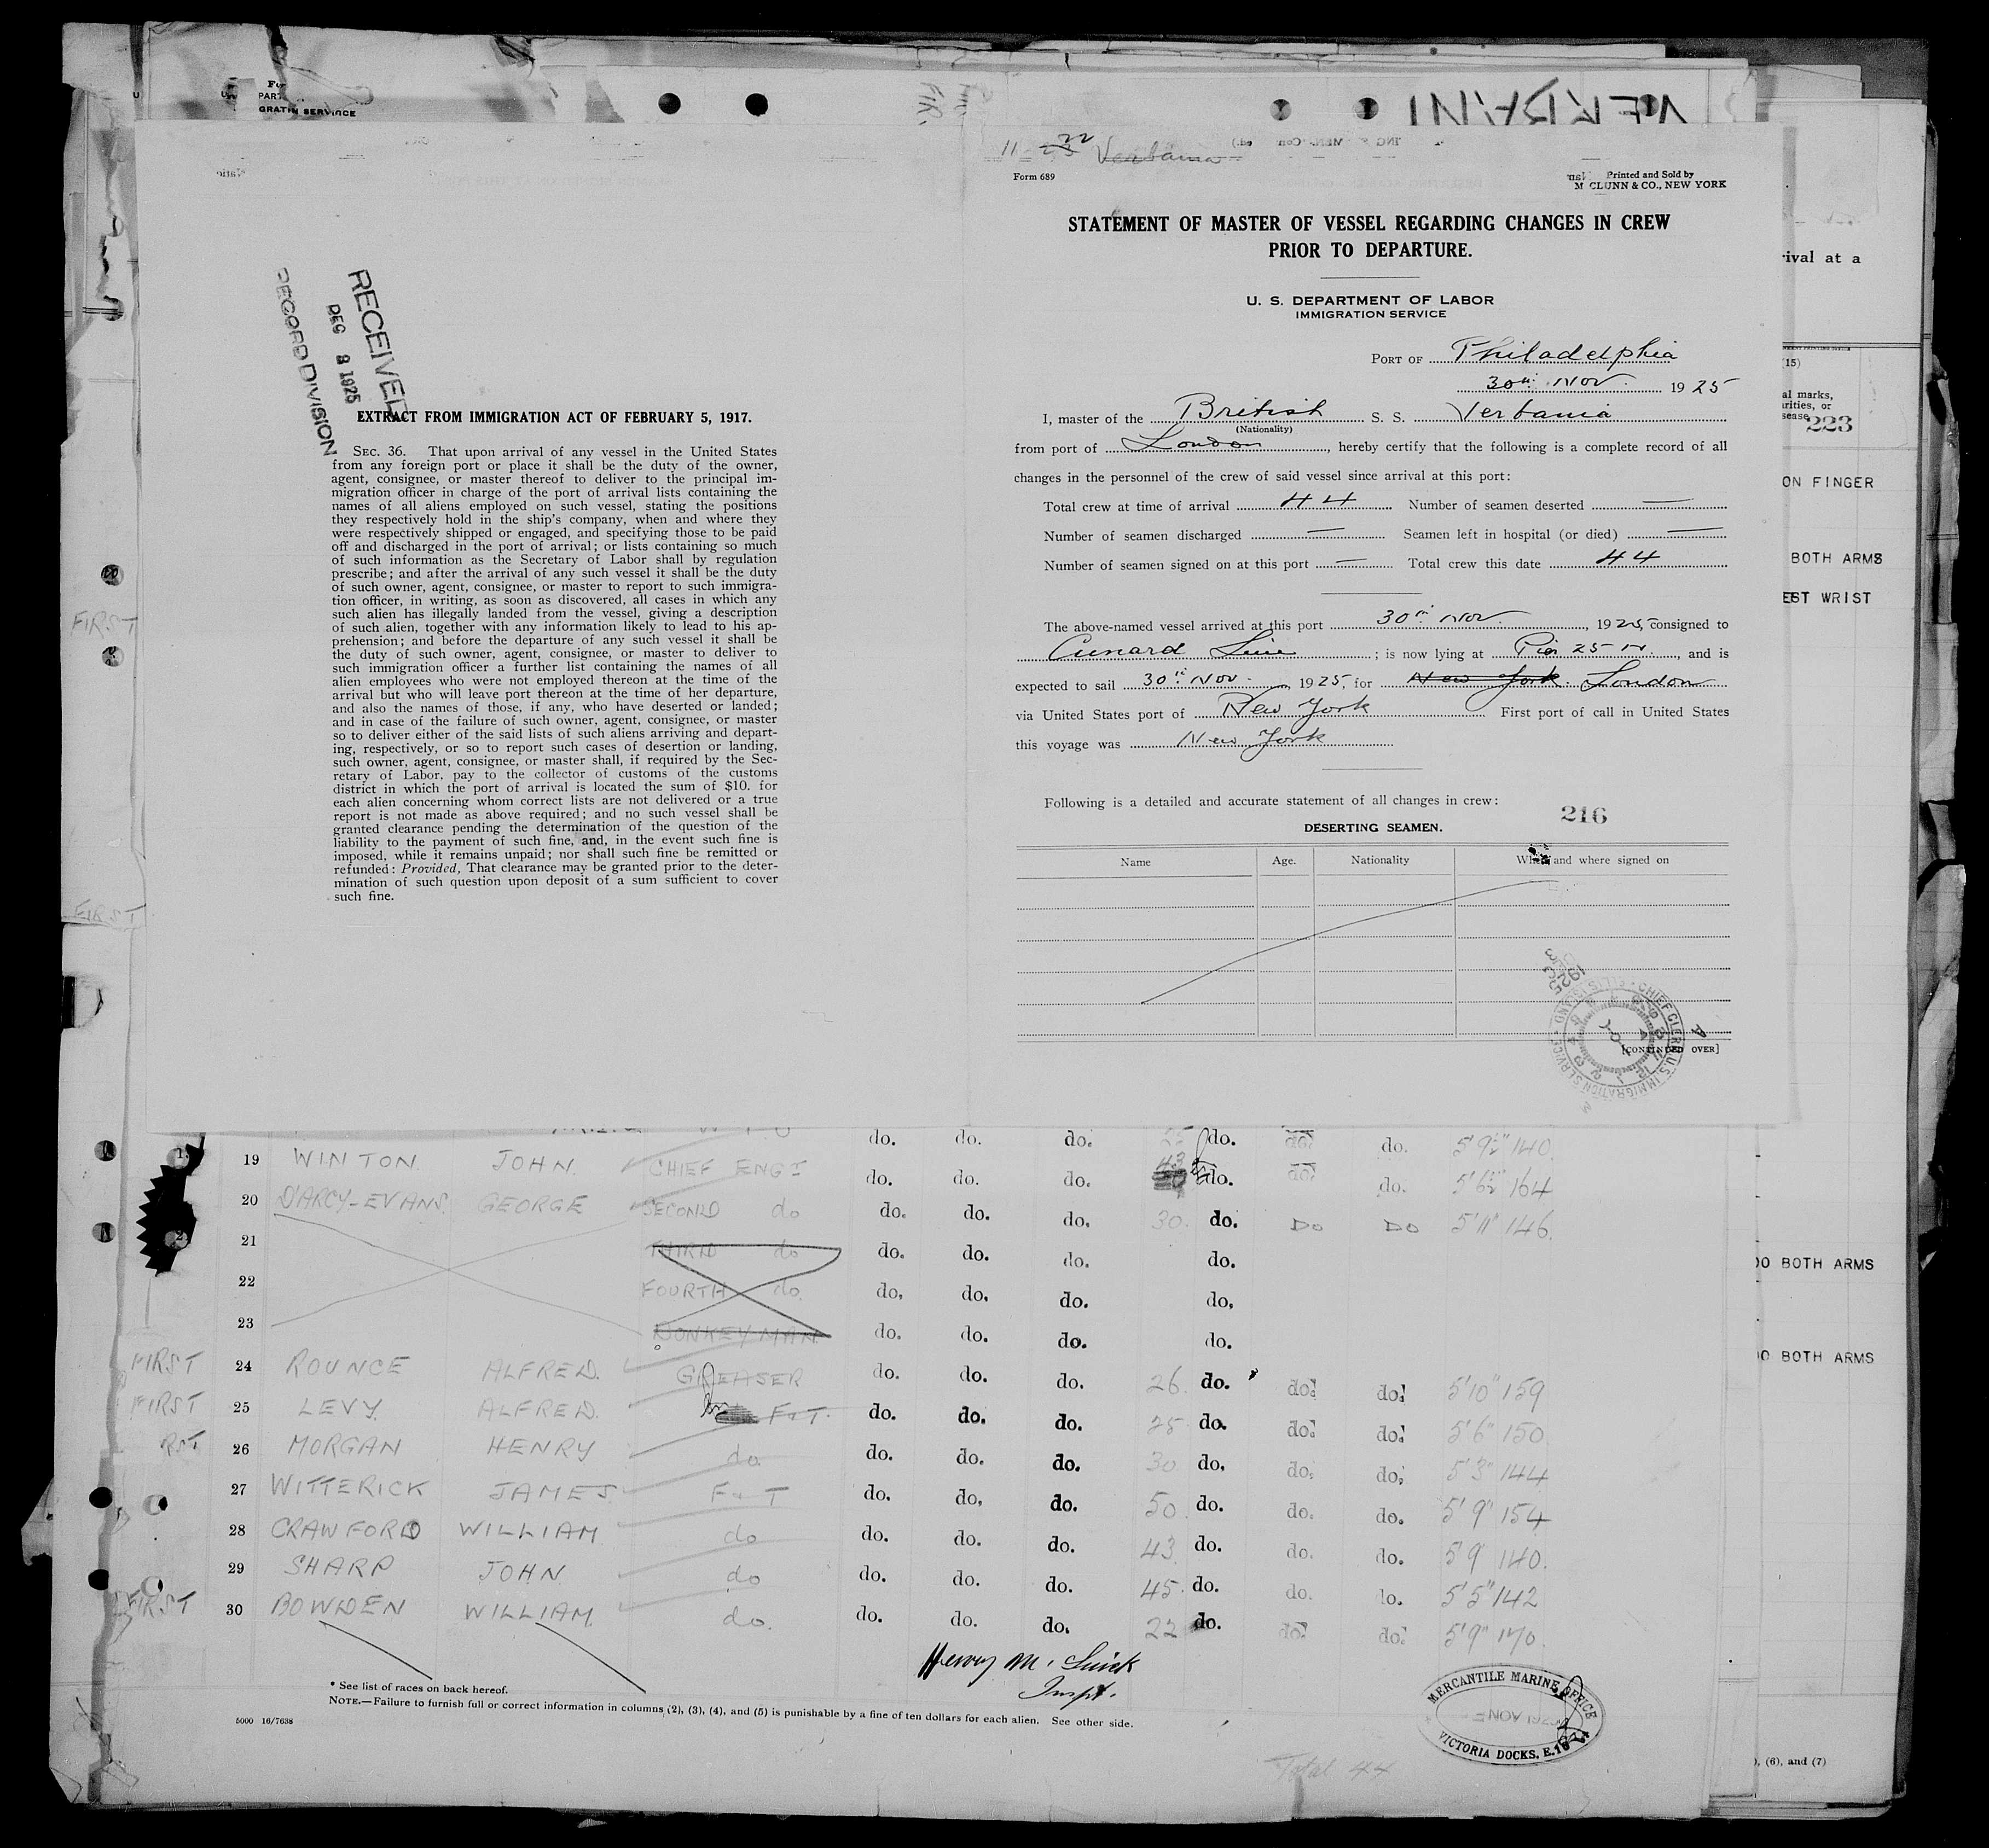 PART
GRATIN SERVICE
RECEIVED
DEC 8 1925
RECORD DIVISION
EXTRACT FROM IMMIGRATION ACT OF FEBRUARY 5, 1917.
SEC. 36. That upon arrival of any vessel in the United States
from any foreign port or place it shall be the duty of the owner,
agent, consignee, or master thereof to deliver to the principal im-
migration officer in charge of the port of arrival lists containing the
names of all aliens employed on such vessel, stating the positions
they respectively hold in the ship's company, when and where they
were respectively shipped or engaged, and specifying those to be paid
off and discharged in the port of arrival; or lists containing so much
of such information as the Secretary of Labor shall by regulation
prescribe; and after the arrival of any such vessel it shall be the duty
of such owner, agent, consignee, or master to report to such immigra-
tion officer, in writing, as soon as discovered, all cases in which any
such alien has illegally landed from the vessel, giving a description
of such alien, together with any information likely to lead to his ap-
prehension; and before the departure of any such vessel it shall be
the duty of such owner, agent, consignee, or master to deliver to
such immigration officer a further list containing the names of all
alien employees who were not employed thereon at the time of the
arrival but who will leave port thereon at the time of her departure,
and also the names of those, if any, who have deserted or landed;
and in case of the failure of such owner, agent, consignee, or master
so to deliver either of the said lists of such aliens arriving and depart-
ing, respectively, or so to report such cases of desertion or landing,
such owner, agent, consignee, or master shall, if required by the Sec-
retary of Labor, pay to the collector of customs of the customs
district in which the port of arrival is located the sum of $10. for
each alien concerning whom correct lists are not delivered or a true
report is not made as above required; and no such vessel shall be
granted clearance pending the determination of the question of the
liability to the payment of such fine, and, in the event such fine is
imposed, while it remains unpaid; nor shall such fine be remitted or
refunded: Provided, That clearance may be granted prior to the deter-
mination of such question upon deposit of a sum sufficient to cover
such fine.
VERBANI
11 22 Verbania
Form 689
Printed and Sold by
M CLUNN & CO., NEW YORK
STATEMENT OF MASTER OF VESSEL REGARDING CHANGES IN CREW
PRIOR TO DEPARTURE.
U. S. DEPARTMENT OF LABOR
IMMIGRATION SERVICE
PORT OF Philadelphia
30th Nov. 1925
I, master of the British S. S. Verbania
(Nationality)
from port of London, hereby certify that the following is a complete record of all
changes in the personnel of the crew of said vessel since arrival at this port:
Total crew at time of arrival 44 Number of seamen deserted —
Number of seamen discharged — Seamen left in hospital (or died) —
Number of seamen signed on at this port — Total crew this date 44
The above-named vessel arrived at this port 30th Nov., 1925, consigned to
Cunard Line; is now lying at Pier 25 N., and is
expected to sail 30th Nov. 1925, for New York. London
via United States port of New York First port of call in United States
this voyage was New York
Following is a detailed and accurate statement of all changes in crew:
216
DESERTING SEAMEN.
Name Age. Nationality When and where signed on
CHIEF CLERK U.S. IMMIGRATION SERVICE
[CONTINUED OVER]
rival at a
(15)
al marks,
rities, or
sease
223
ON FINGER
BOTH ARMS
EST WRIST
FIRST
FIRST
do. do. do. do. do. do. 5'9½" 140.
19 WINTON. JOHN. CHIEF ENGR do. do. do. 43 do. do. do. 5'6½" 164
20 D'ARCY-EVANS. GEORGE SECOND do do. do. do. 30. do. DO DO 5'11" 146.
21 THIRD do do. do. do. do.
22 FOURTH do. do. do. do. do.
23 DONKEYMAN do. do. do. do.
FIRST 24 ROUNCE ALFRED. GREASER do. do. do. 26. do. do. do. 5'10" 159
FIRST 25 LEVY ALFRED. F & T. do. do. do. 25 do. do. do. 5'6" 150
RST 26 MORGAN HENRY do do. do. do. 30 do. do. do. 5'3" 144
27 WITTERICK JAMES F & T do. do. do. 50 do. do. do. 5'9" 154
28 CRAWFORD WILLIAM do do. do. do. 43. do. do. do. 5'9 140.
29 SHARP JOHN do do. do. do. 45. do. do. do. 5'5" 142
FIRST 30 BOWDEN WILLIAM. do. do. do. do. 22 do. do. do. 5'9" 170.
OO BOTH ARMS
OO BOTH ARMS
Inspt.
* See list of races on back hereof.
NOTE.—Failure to furnish full or correct information in columns (2), (3), (4), and (5) is punishable by a fine of ten dollars for each alien. See other side.
5000 16/7638
MERCANTILE MARINE OFFICE
NOV 1925
VICTORIA DOCKS, E.16
Total 44
), (6), and (7)